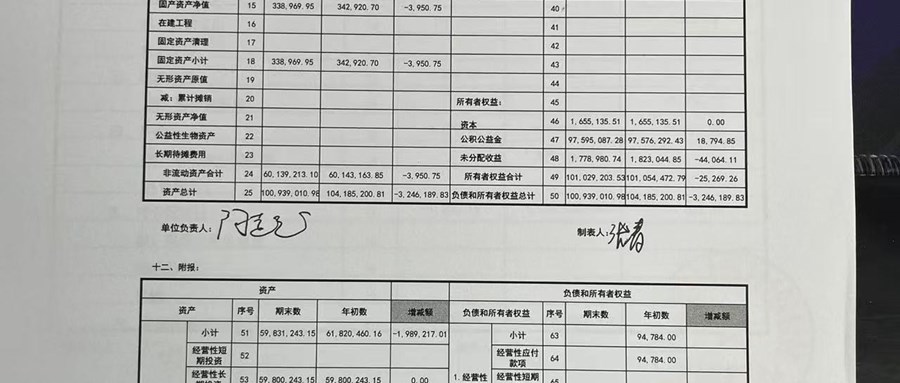 固产资产净值 15 338,969.95 342,920.70 -3,950.75 40
在建工程 16 41
固定资产清理 17 42
固定资产小计 18 338,969.95 342,920.70 -3,950.75 43
无形资产原值 19 44
减:累计摊销 20 所有者权益: 45
无形资产净值 21 资本 46 1,655,135.51 1,655,135.51 0.00
公益性生物资产 22 公积公益金 47 97,595,087.28 97,576,292.43 18,794.85
长期待摊费用 23 未分配收益 48 1,778,980.74 1,823,044.85 -44,064.11
非流动资产合计 24 60,139,213.10 60,143,163.85 -3,950.75 所有者权益合计 49 101,029,203.53 101,054,472.79 -25,269.26
资产总计 25 100,939,010.98 104,185,200.81 -3,246,189.83 负债和所有者权益总计 50 100,939,010.98 104,185,200.81 -3,246,189.83
单位负责人: 制表人:
十二、附报:
资产 负债和所有者权益
资产 序号 期末数 年初数 增减额 负债和所有者权益 序号 期末数 年初数 增减额
小计 51 59,831,243.15 61,820,460.16 -1,989,217.01 小计 63 94,784.00
经营性短期投资 52 经营性应付款项 64 94,784.00
经营性长 53 59,800,243.15 59,800,243.15 0.00 1.经营性 经营性短期